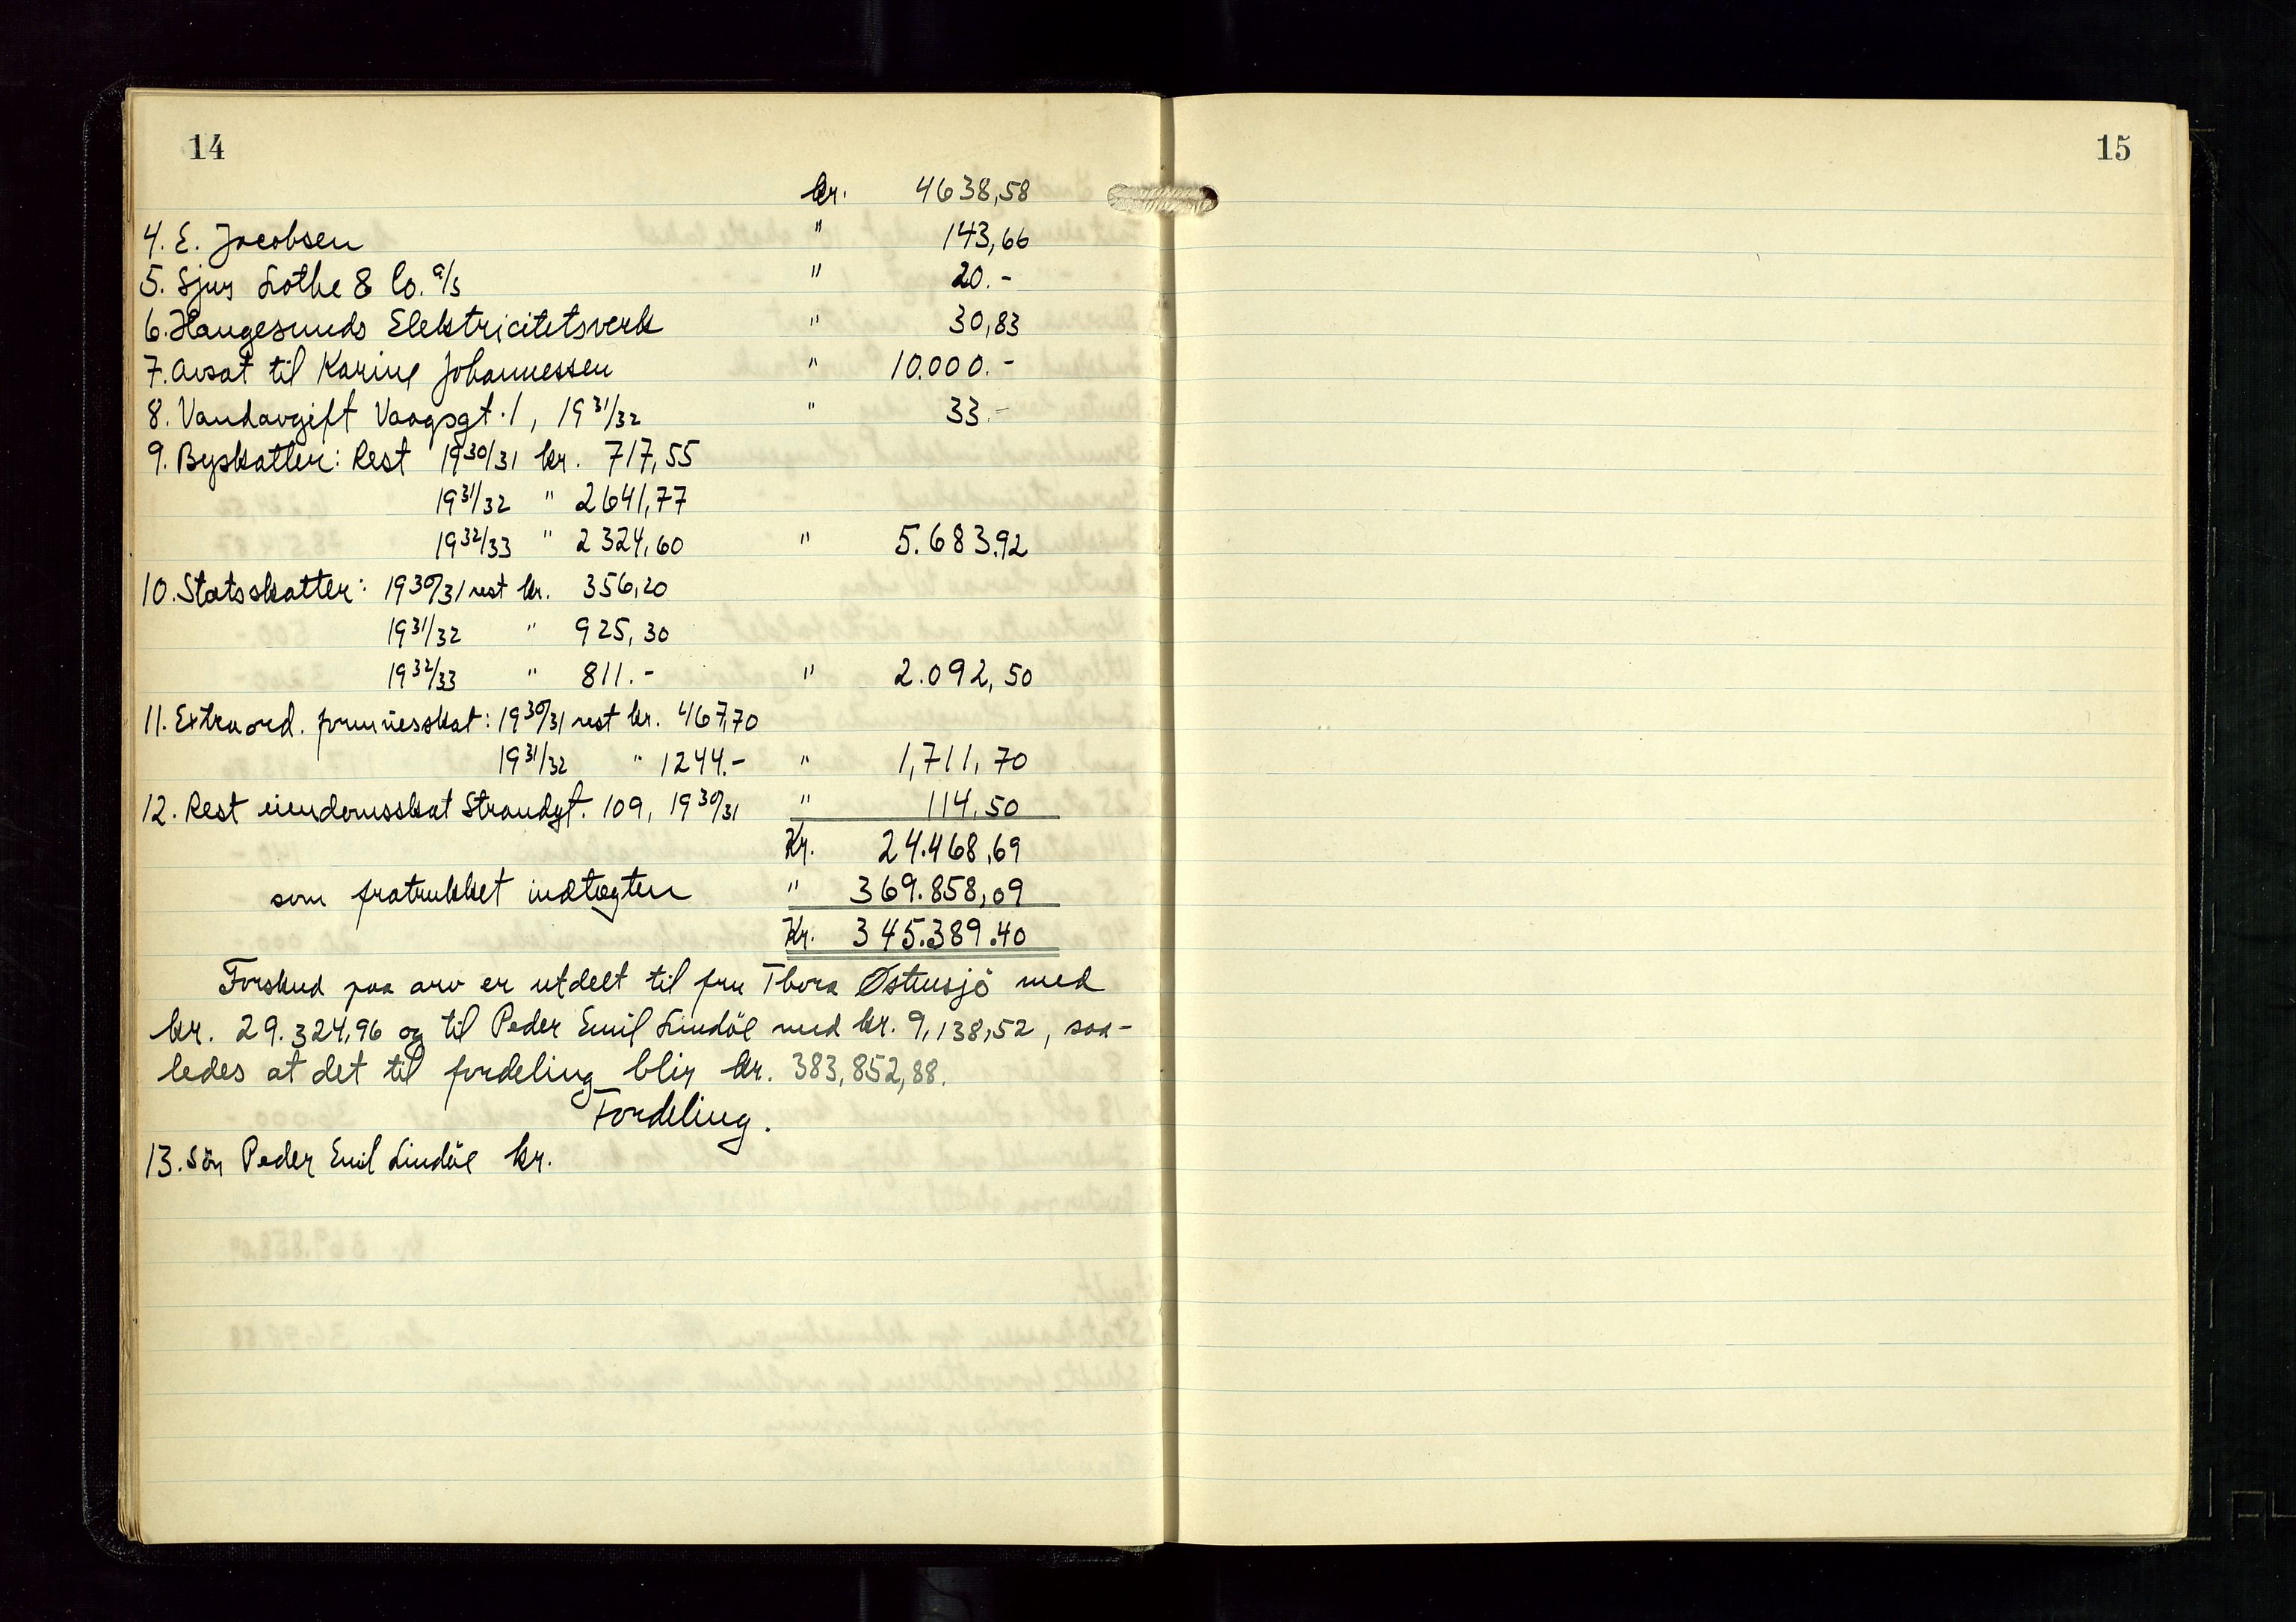 14
kr. 4638,58
4. E. Jacobsen " 143,66
5. Sjur Lothe & Co. a/s " 20.-
6. Haugesunds Elektricitetsverk " 30,83
7. Avsat til Karine Johannessen " 10.000.-
8. Vandavgift Vaagsgt. 1, 1931/32 " 33.-
9. Byskatter: Rest 1930/31 kr. 717,55
1931/32 " 2641,77
1932/33 " 2324,60 " 5.683.92
10. Statsskatter: 1930/31 rest kr. 356,20
1931/32 " 925,30
1932/33 " 811.- " 2.092,50
11. Extraord. formuesskat: 1930/31 rest kr. 467,70
1931/32 " 1244.- " 1,711,70
12. Rest eiendomsskat Strandgt. 109, 1930/31 " 114,50
Kr. 24.468,69
som fratrukket indtægten " 369.858,09
Kr. 345.389.40
Forskud paa arv er utdelt til fru Thora Østensjö med
kr. 29.324,96 og til Peder Emil Lindöe med kr. 9,138,52, saa-
ledes at det til fordeling blir kr. 383,852,88.
Fordeling.
13. Sön Peder Emil Lindöe kr.
15